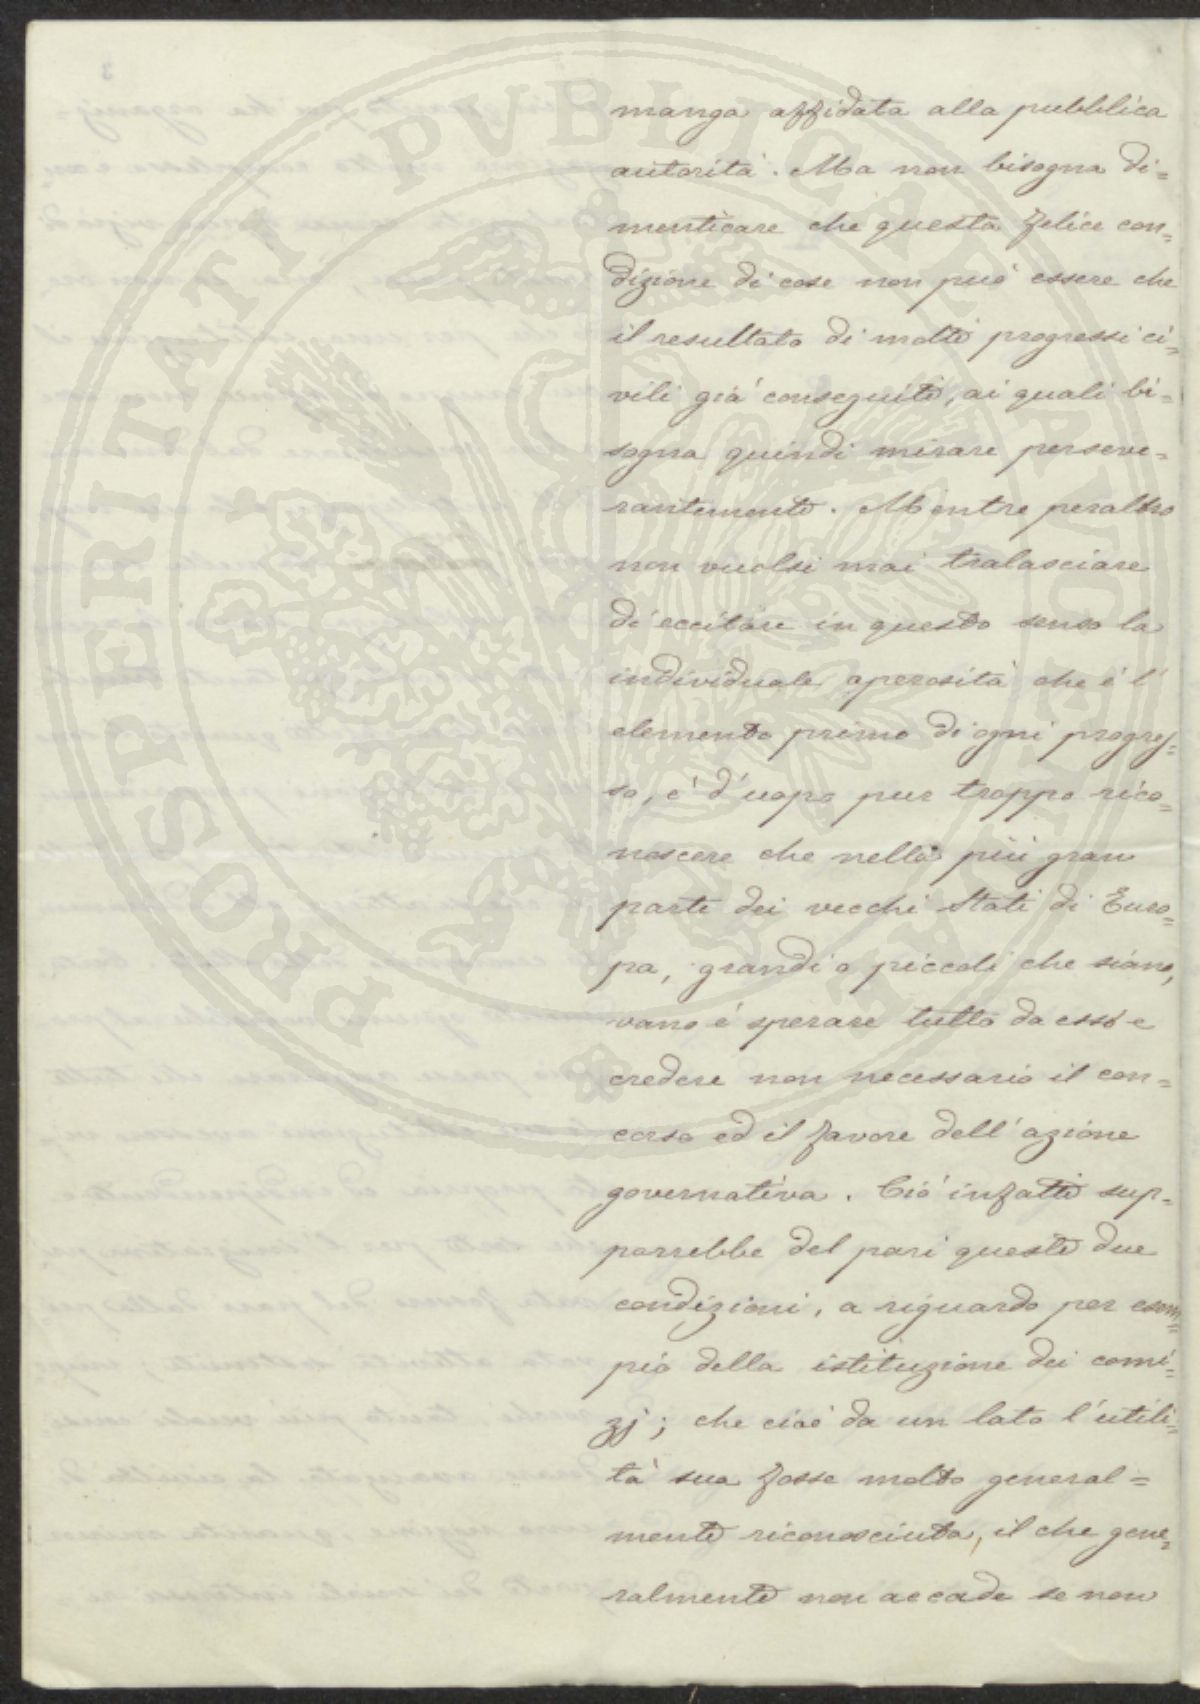 manga affidata alla pubblica
autorità. Ma non bisogna di=
menticare che questa felice con=
dizione di cose non può essere che
il resultato di molti progressi ci=
vili già conseguiti, ai quali bi=
sogna quindi mirare perseve=
rantemente. Mentre peraltro
non vuolsi mai tralasciare
di eccitare in questo senso la
individuale operosità che è l'
elemento primo di ogni progres=
so, è d'uopo pur troppo rico=
noscere che nella più gran
parte dei vecchi Stati di Euro=
pa, grandi o piccoli che siano,
vano è sperare tutto da essi e
credere non necessario il con=
corso ed il favore dell'azione
governativa. Ciò infatti sup=
porrebbe del pari queste due
condizioni, a riguardo per esem=
pio della istituzione dei comi=
zj; che cioè da un lato l'utili=
tà sua fosse molto general=
mente riconosciuta, il che gene=
ralmente non accade se non
PROSPERITATI PVBLICAE AVGENDAE